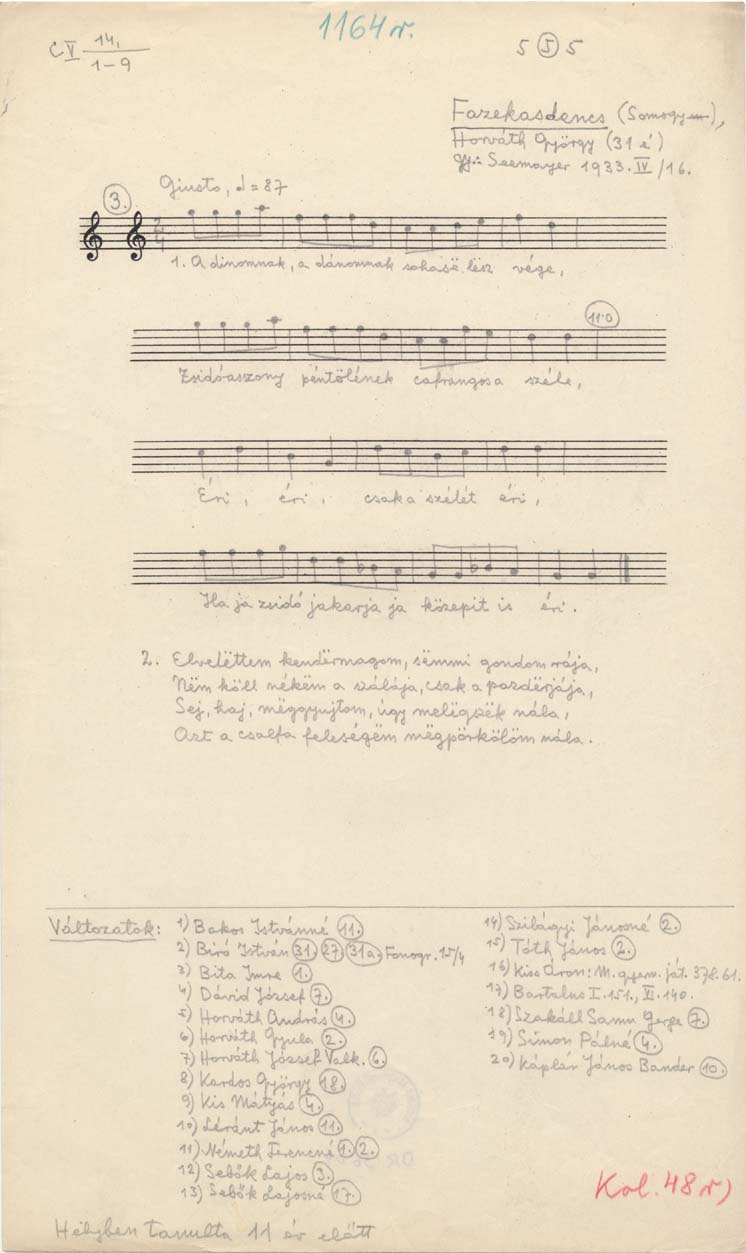 1164 r.
C V 14, / 1-9
5 5 5
Fazekasdencs (Somogym),
Horváth György (31 é)
gy.: Seemayer 1933. IV/16.
Giusto, ♩=87
3.
2/4
1. A dinomnak, a dánomnak sohasë lësz vége,
11.0
Zsidóasszony péntölének cafrangosa széle,
Éri, éri, csak a szélét éri,
Ha ja zsidó jakarja ja közepit is éri.
2. Elvetëttem kendërmagom, sëmmi gondom rája,
Nëm köll nékëm a szálája, csak a pazdërjája,
Sej, haj, mëggyujtom, úgy melegszëk nála,
Azt a csalfa feleségëm mëgpörkölöm nála.
Változatok:
1) Bakos Istvánné 11.
2) Biró István 31. 27. 31a. Fonogr. 15/4
3) Bita Imre 1.
4) Dávid József 7.
5) Horváth András 4.
6) Horváth Gyula 2.
7) Horváth József Valk. 6.
8) Kardos György 18.
9) Kis Mátyás 4.
10) Léránt János 11.
11) Németh Ferencné 1. 2.
12) Sebők Lajos 3.
13) Sebők Lajosné 17.
14) Szilágyi Jánosné 2.
15) Tóth János 2.
16) Kiss Áron: M. gyem. ját. 378. 61.
17) Bartalus I. 151., VI. 140.
18) Szakáll Samu Gerge 7.
19) Simon Pálné 4.
20) Káplár János Bander 10.
Kol. 48 r)
Helyben tanulta 11 év előtt